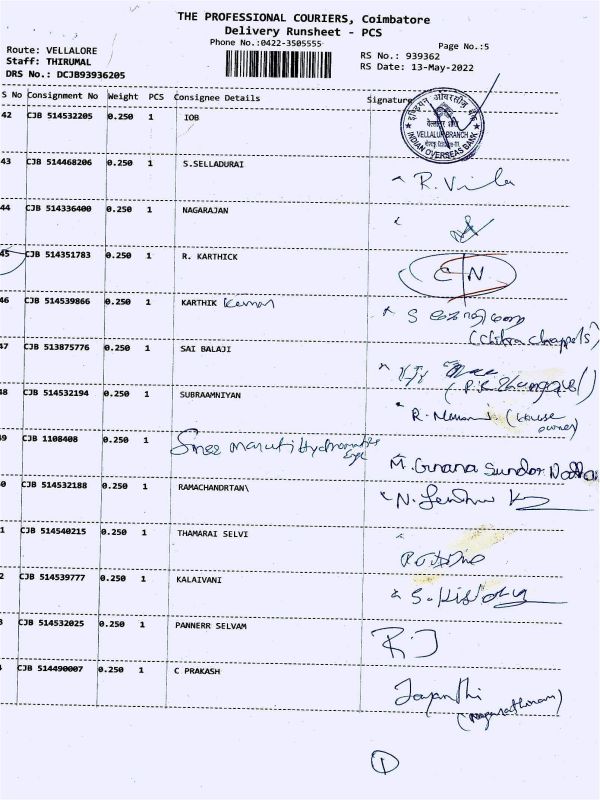 THE PROFESSIONAL COURIERS, Coimbatore
Delivery Runsheet - PCS
Phone No.:0422-3505555
Page No.:5
Route: VELLALORE
Staff: THIRUMAL
DRS No.: DCJB93936205
RS No.: 939362
RS Date: 13-May-2022
S No Consignment No Weight PCS Consignee Details Signature
42 CJB 514532205 0.250 1 IOB
VELLALUR BRANCH
INDIAN OVERSEAS BANK
43 CJB 514468206 0.250 1 S.SELLADURAI
44 CJB 514336400 0.250 1 NAGARAJAN
45 CJB 514351783 0.250 1 R. KARTHICK
46 CJB 514539866 0.250 1 KARTHIK Kumar
S
47 CJB 513875776 0.250 1 SAI BALAJI
48 CJB 514532194 0.250 1 SUBRAAMNIYAN
R. (House
owner)
9 CJB 1108408 0.250 1 Sree maruti
M. Gnana Sundar
0 CJB 514532188 0.250 1 RAMACHANDRTAN\
1 CJB 514540215 0.250 1 THAMARAI SELVI
2 CJB 514539777 0.250 1 KALAIVANI
3 CJB 514532025 0.250 1 PANNERR SELVAM
CJB 514490007 0.250 1 C PRAKASH
Jayanthi
1